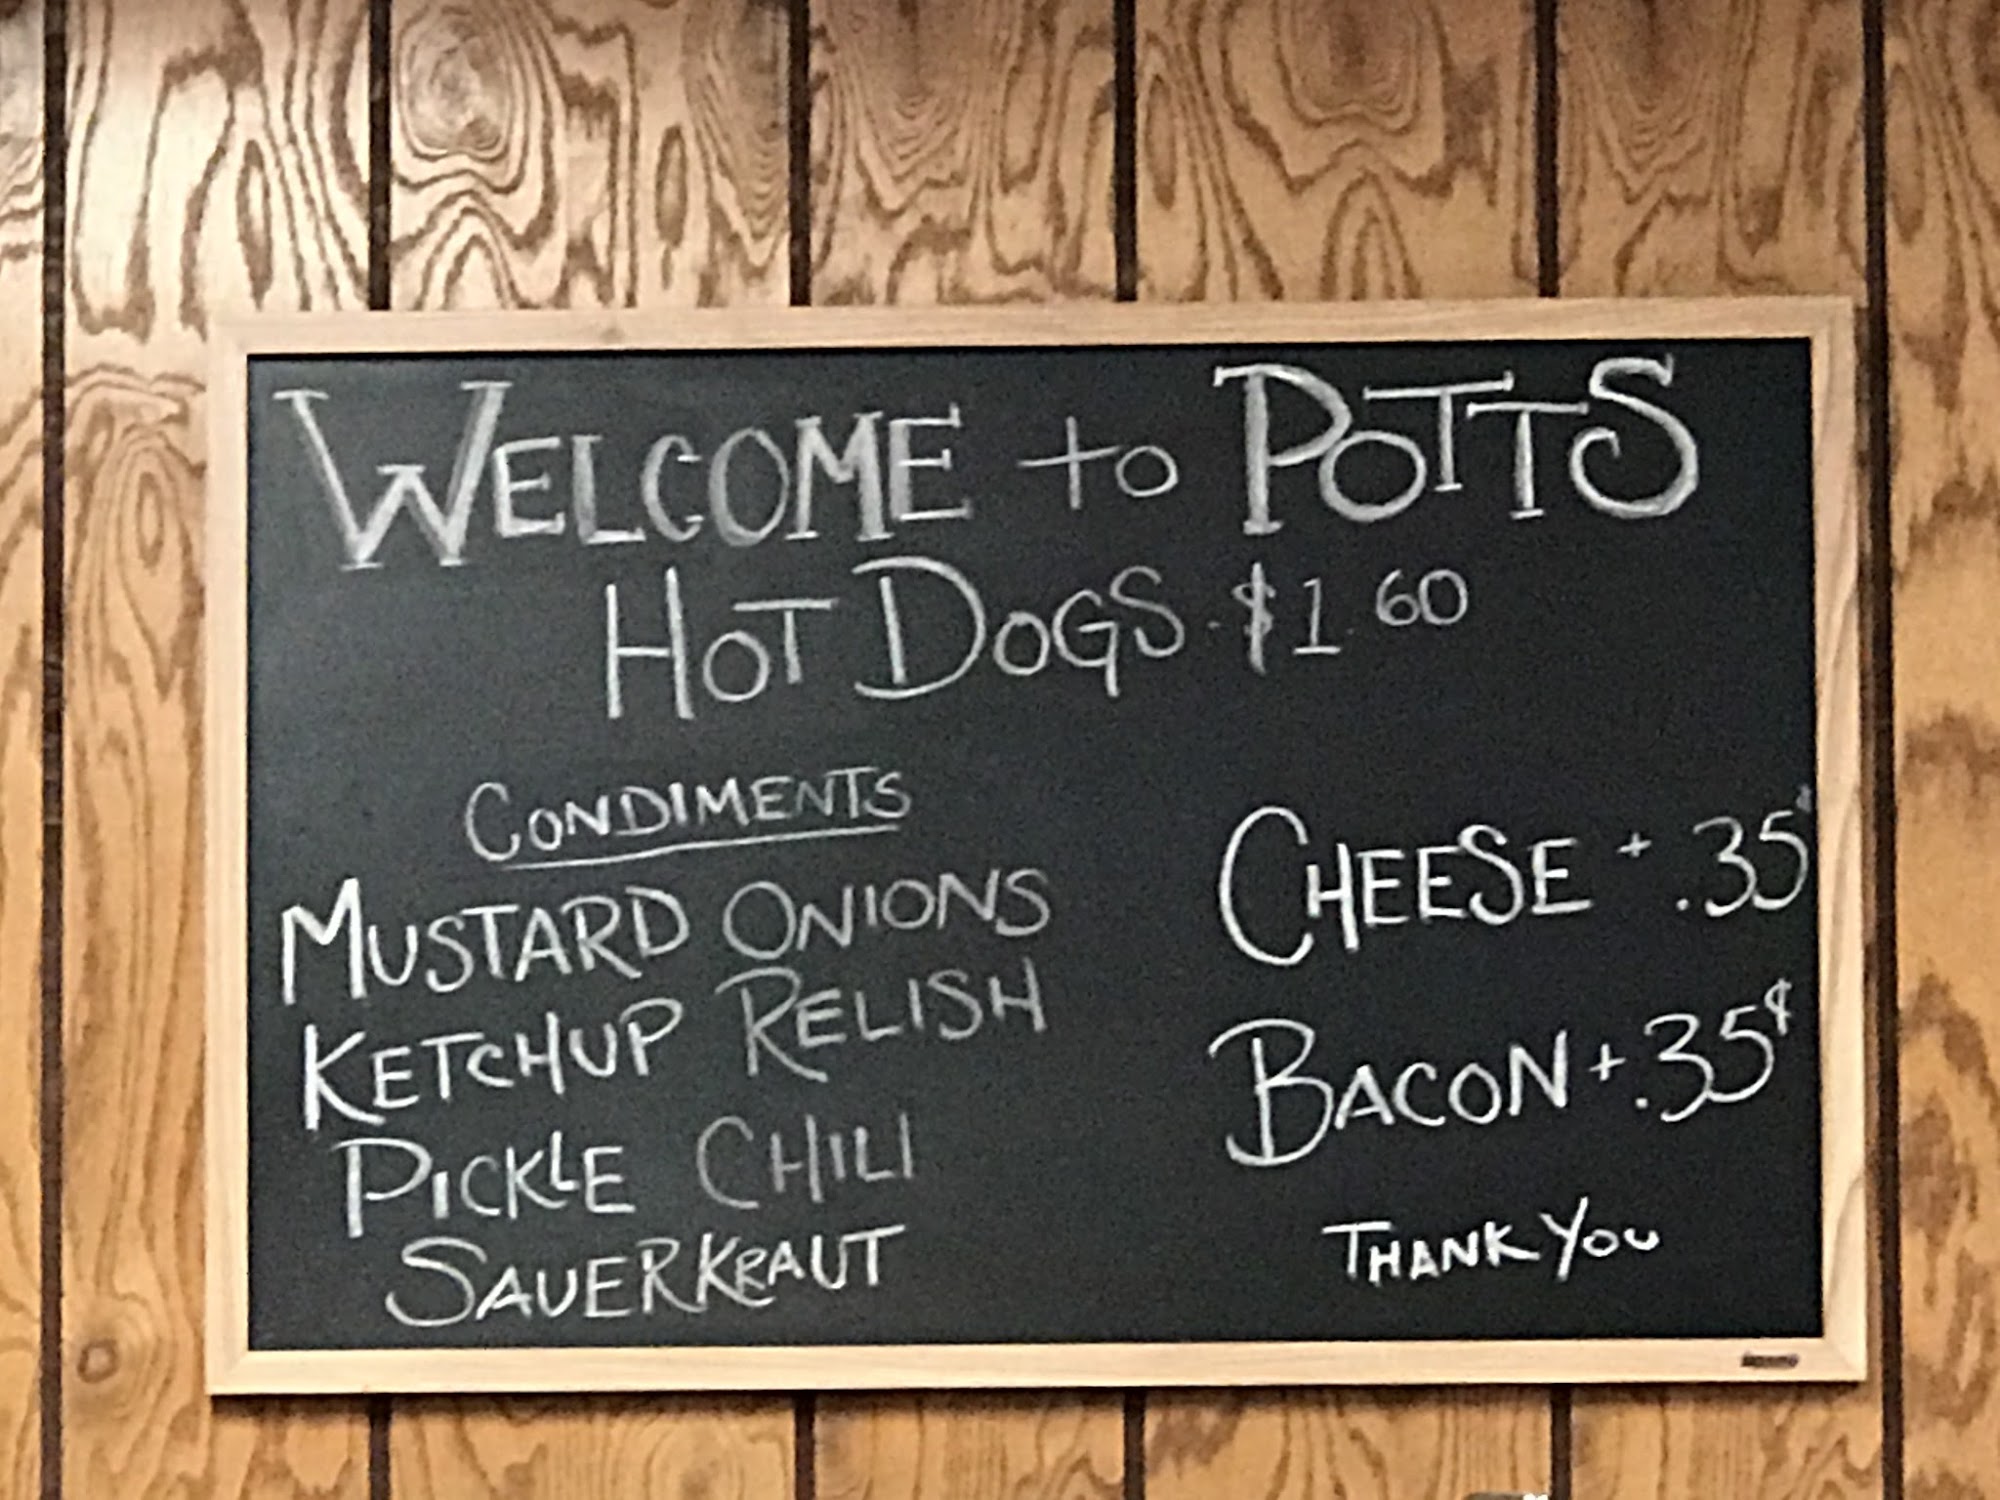 WELCOME to POTTS
HOT DOGS. $1.60
CONDIMENTS
MUSTARD ONIONS
KETCHUP RELISH
PICKLE CHILI
SAUERKRAUT
CHEESE + .35¢
BACON + .35¢
THANK YOU